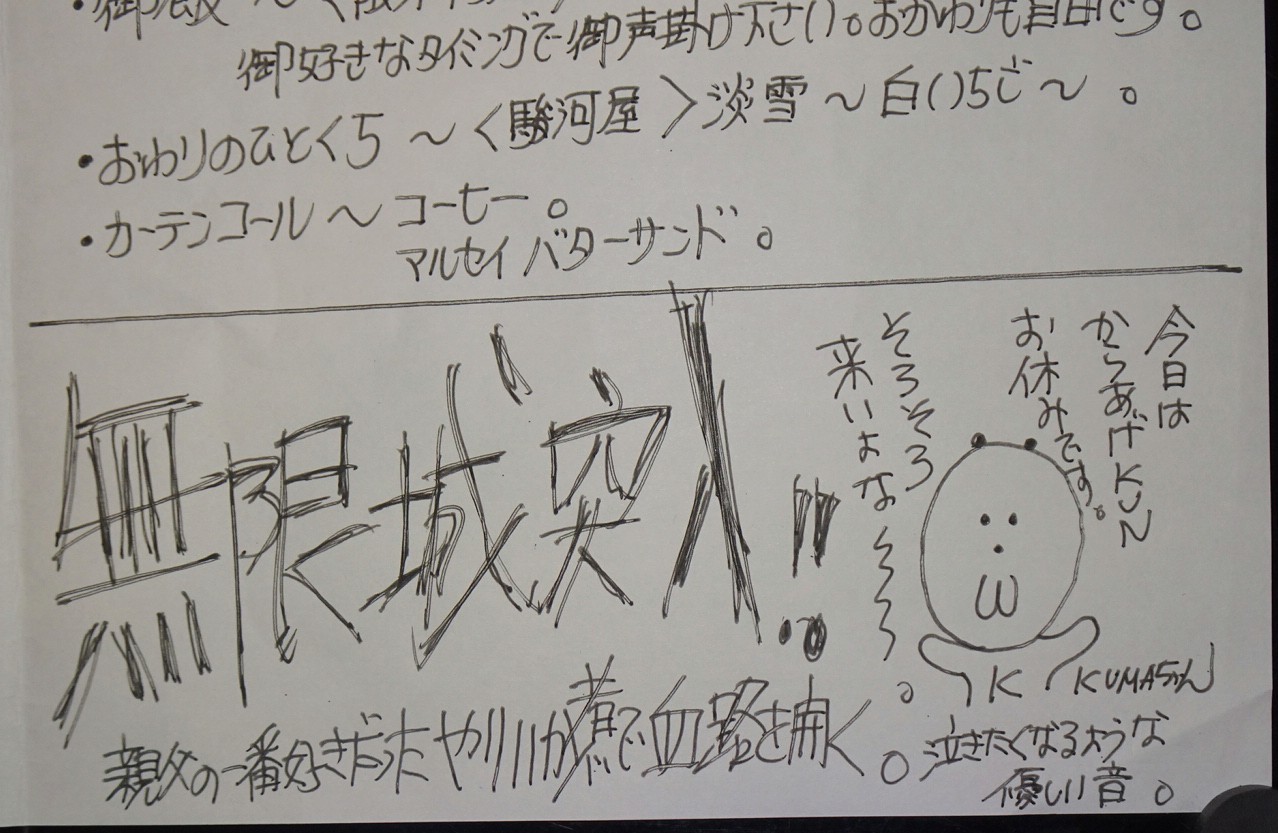 ・御飯～
御好きなタイミングで御声掛け下さい。おかわりも自由です。
・おわりのひとくち～〈駿河屋〉淡雪～白いちご～。
・カーテンコール～コーヒー。
マルセイバターサンド。
無限城突入!!
今日は
からあげKUN
お休みです。
そろそろ
来いよな〜〜〜。
K
KUMAちゃん
親父の一番好きだった
煮で血路を開く。
泣きたくなるような
優しい音。